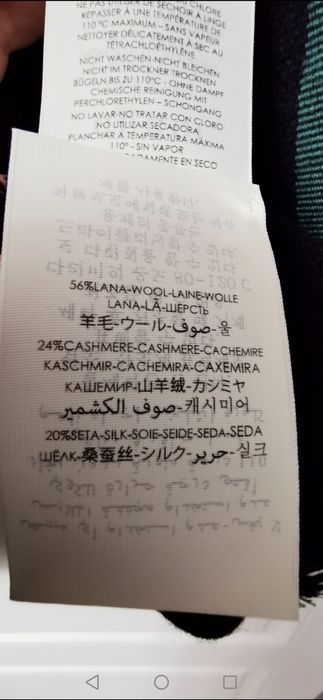 NE PAS UTILISER DE SÉCHOIR À LINGE
REPASSER À UNE TEMPÉRATURE DE
110 °C MAXIMUM – SANS VAPEUR
NETTOYER DÉLICATEMENT À SEC AU
TÉTRACHLOÉTHYLÈNE
NICHT WASCHEN-NICHT BLEICHEN
NICHT IM TROCKNER TROCKNEN
BÜGELN BIS ZU 110°C - OHNE DAMPF
CHEMISCHE REINIGUNG MIT
PERCHLORETHYLEN – SCHONGANG
NO LAVAR-NO TRATAR CON CLORO
NO UTILIZAR SECADORA
PLANCHAR A TEMPERATURA MÁXIMA
110° - SIN VAPOR
EN SECO
56%LANA-WOOL-LAINE-WOLLE
LANA-LÃ-ШЕРСТЬ
羊毛-ウール-صوف-울
24%CASHMERE-CASHMERE-CACHEMIRE
KASCHMIR-CACHEMIRA-CAXEMIRA
КАШЕМИР-山羊绒-カシミヤ
صوف الكشمير-캐시미어
20%SETA-SILK-SOIE-SEIDE-SEDA-SEDA
ШЕЛК-桑蚕丝-シルク-حرير-실크